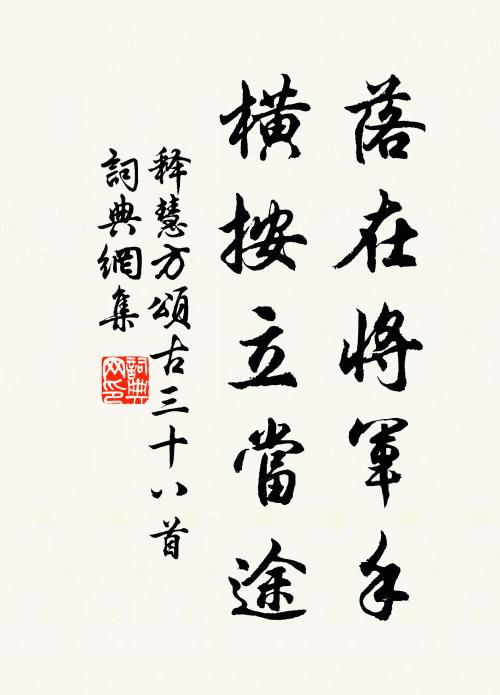 落在將軍手
橫按立當途
释慧方頌古三十八首
詞典網集
詞典
网印